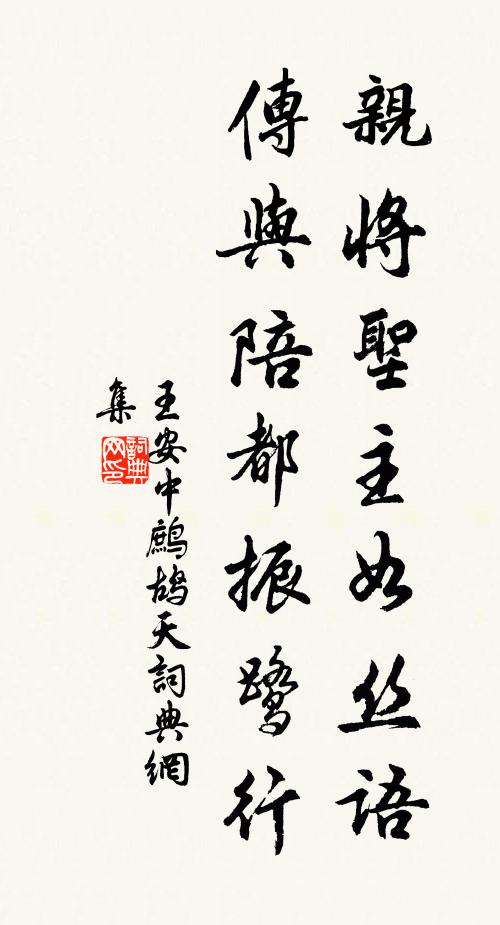 親將聖主如丝語
傳與陪都振鷺行
王安中鷓鴣天詞典網
集
詞典
网印